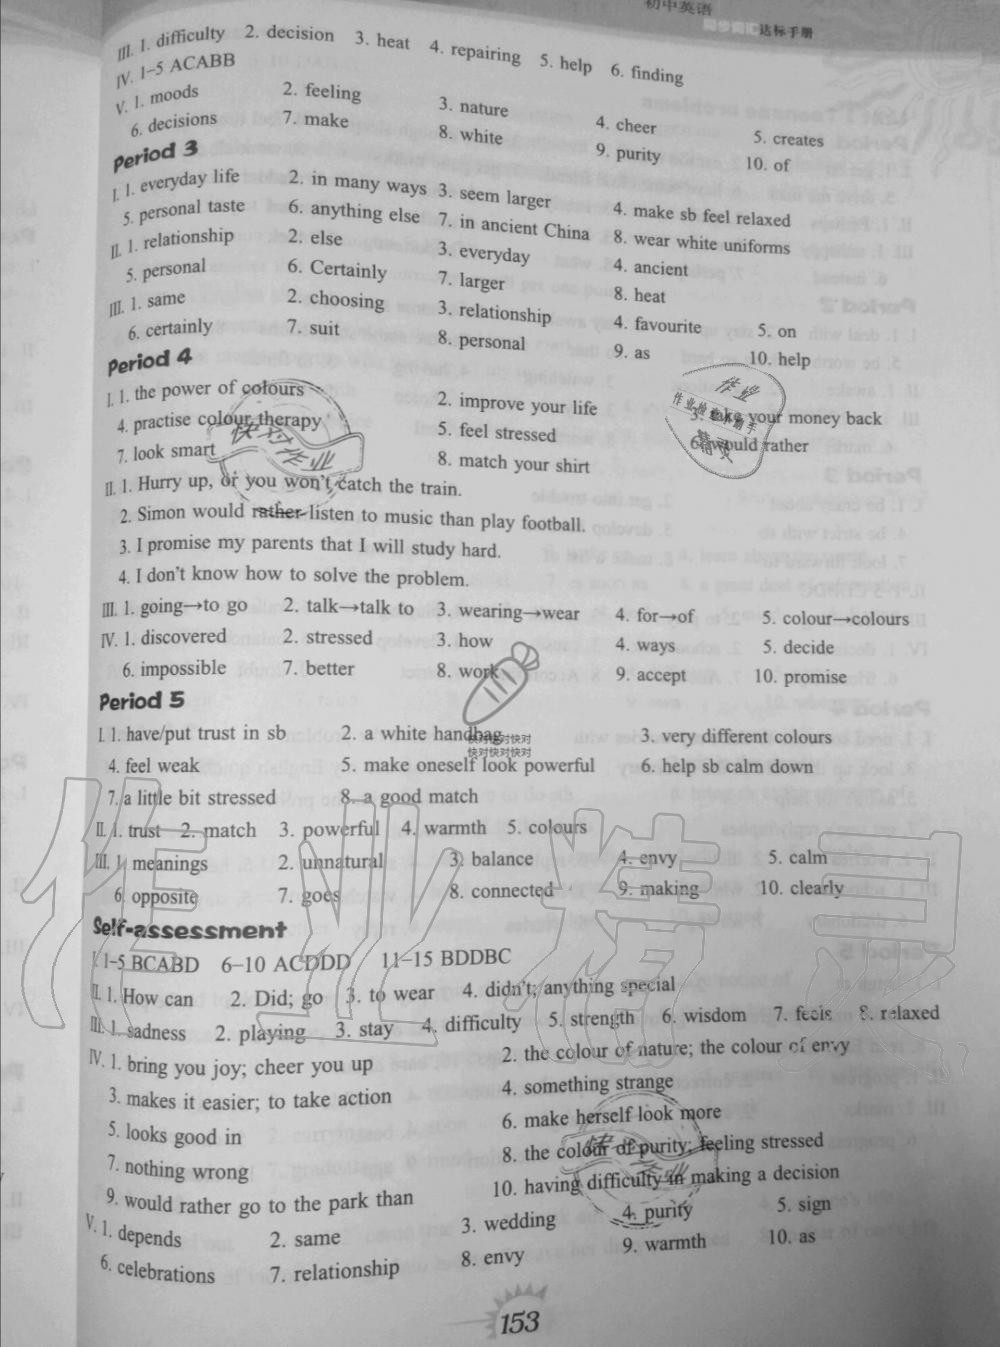 初中英语
同步词汇达标手册
III. 1. difficulty 2. decision 3. heat 4. repairing 5. help 6. finding
IV. 1-5 ACABB
V. 1. moods 2. feeling 3. nature 4. cheer 5. creates
6. decisions 7. make 8. white 9. purity 10. of
Period 3
I. 1. everyday life 2. in many ways 3. seem larger 4. make sb feel relaxed
5. personal taste 6. anything else 7. in ancient China 8. wear white uniforms
II. 1. relationship 2. else 3. everyday 4. ancient
5. personal 6. Certainly 7. larger 8. heat
III. 1. same 2. choosing 3. relationship 4. favourite 5. on
6. certainly 7. suit 8. personal 9. as 10. help
Period 4
I. 1. the power of colours 2. improve your life 3. take your money back
4. practise colour therapy 5. feel stressed 6. would rather
7. look smart 8. match your shirt
II. 1. Hurry up, or you won't catch the train.
2. Simon would rather listen to music than play football.
3. I promise my parents that I will study hard.
4. I don't know how to solve the problem.
III. 1. going→to go 2. talk→talk to 3. wearing→wear 4. for→of 5. colour→colours
IV. 1. discovered 2. stressed 3. how 4. ways 5. decide
6. impossible 7. better 8. work 9. accept 10. promise
Period 5
I. 1. have/put trust in sb 2. a white handbag 3. very different colours
快对快对快对
快对快对快对
4. feel weak 5. make oneself look powerful 6. help sb calm down
7. a little bit stressed 8. a good match
II. 1. trust 2. match 3. powerful 4. warmth 5. colours
III. 1. meanings 2. unnatural 3. balance 4. envy 5. calm
6. opposite 7. goes 8. connected 9. making 10. clearly
Self-assessment
I. 1-5 BCABD 6-10 ACDDD 11-15 BDDBC
II. 1. How can 2. Did; go 3. to wear 4. didn't; anything special
III. 1. sadness 2. playing 3. stay 4. difficulty 5. strength 6. wisdom 7. feels 8. relaxed
IV. 1. bring you joy; cheer you up 2. the colour of nature; the colour of envy
3. makes it easier; to take action 4. something strange
5. looks good in 6. make herself look more
7. nothing wrong 8. the colour of purity; feeling stressed
9. would rather go to the park than 10. having difficulty in making a decision
V. 1. depends 2. same 3. wedding 4. purity 5. sign
6. celebrations 7. relationship 8. envy 9. warmth 10. as
153